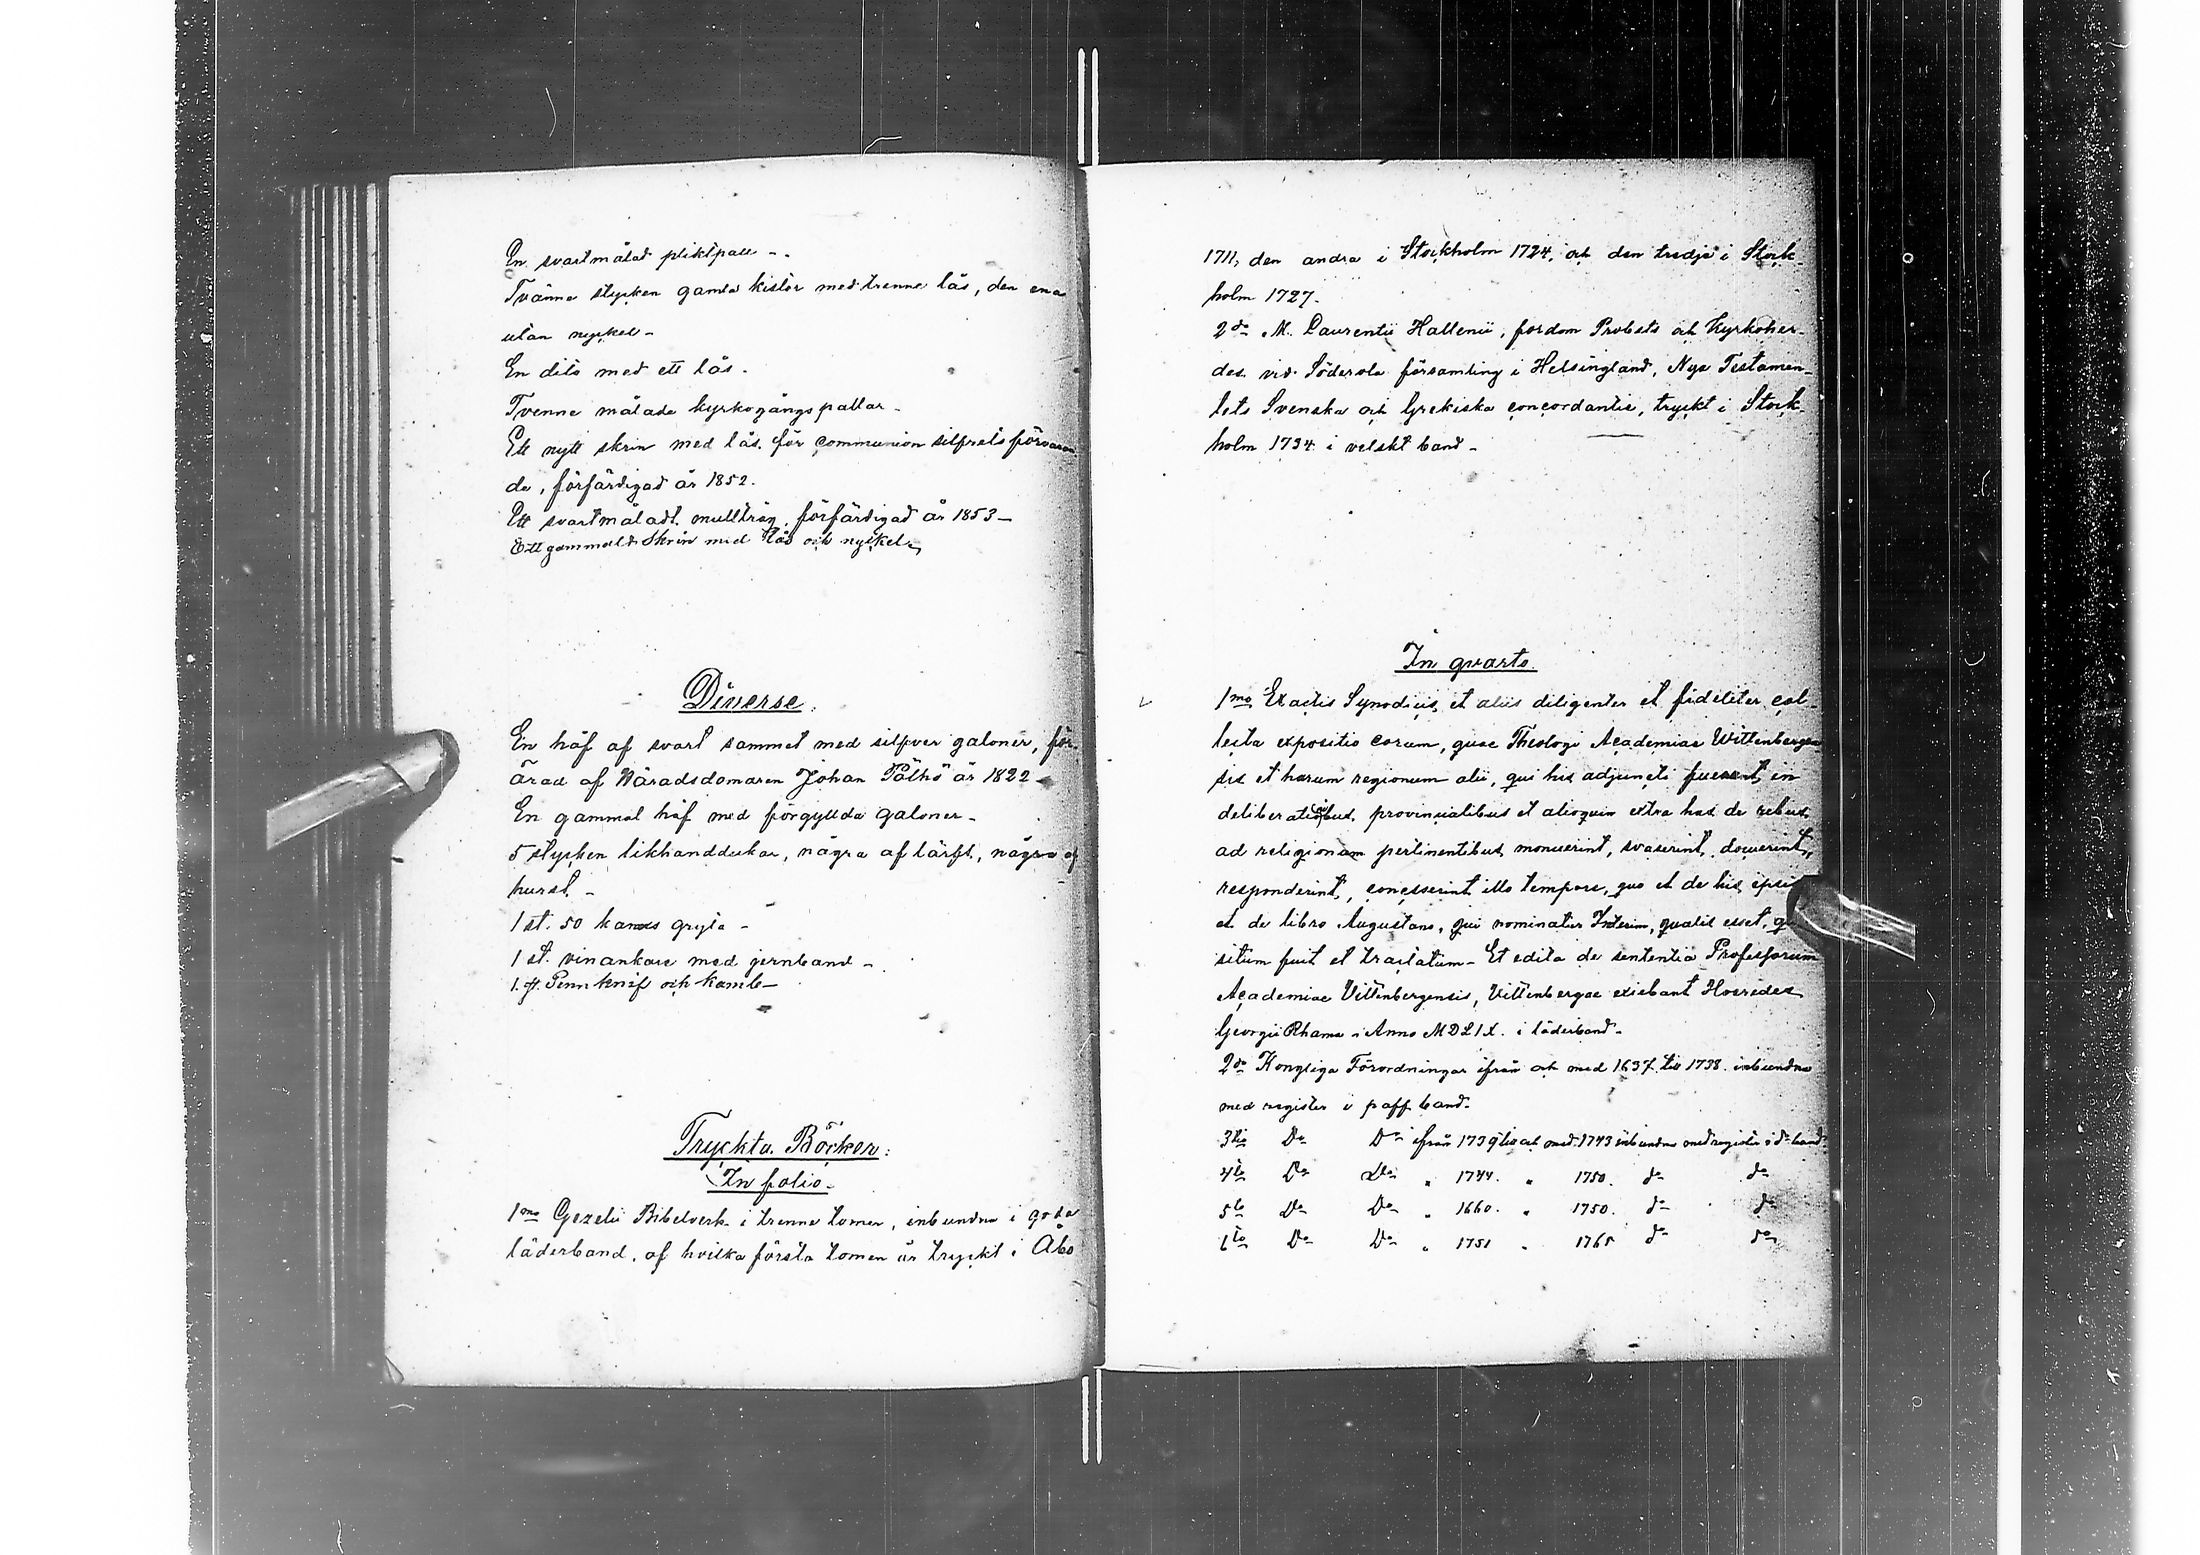 En svartmålad pliktpall -.
Tvänne stycken gamla kistor med trenne lås, den ena
utan nyckel -
En dito med ett lås.
Tvenne målade kyrkogångspallar -
Ett nytt skrin med lås för communion silfrets förvaran
de, förfärdigad år 1852.
Ett svartmåladt mulltråg, förfärdigad år 1853 -
Ett gammalt skrin med lås och nyckel -
Diverse.
En håf af svart sammet med silfver galoner, för-
ärad af Häradsdomaren Johan Pålhö år 1822 -
En gammal håf med förgyllda galoner -
5 stycken likhanddukar, några af lärft, några af
hurst -
1 st. 50 kannos gryta -
1 st. vinankare med jernband -
1. st. Pennknif och kamb -
Tryckta Böcker:
In folio -
1mo Gezelii Bibelverk i trenne tomer, inbundna i goda
läderband, af hvilka första tomen är tryckt i Åbo
1711, den andra i Stockholm 1724, och den tredje i Stock-
holm 1727.
2do M. Laurentii Hallenii, fordom Probsts och Kyrkoher-
des vid Söderala församling i Helsingland, Nya Testamen-
tets Svenska och Grekiska concordantie, tryckt i Stock-
holm 1734 i velskt band -
In qvarto.
1mo Ex actis Synodicis et aliis diligenter et fideliter col-
lecta expositio eorum, quae Theologi Academiae Wittenbergen
sis et harum regionum alii, qui his adjuncti fuerant, in
deliberationibus provincialibus et alioquin extra has de rebus
ad religionem pertinentibus monuerint, svaserint, docuerint,
responderint, concesserint illo tempore, quo et de his ipsis
et de libro Augustano, qui nominatur Interim, qualis esset, qu
situm fuit et tractatum - Et edita de sententia Professorum
Academiae Vittenbergensis, Vittenbergae exiebant Hoeredes
Georgii Rhama i Anno MDLIX. i läderband -
2do Kongliga Förordningar ifrån och med 1637 till 1738. inbundna
med register i paff band -
3tio Do Do ifrån 1739 till och med 1743 inbundna med register i do band
4to Do Do " 1744. " 1750. do do
5to Do Do " 1660. " 1750. do do
6to Do Do " 1751 " 1765 do do